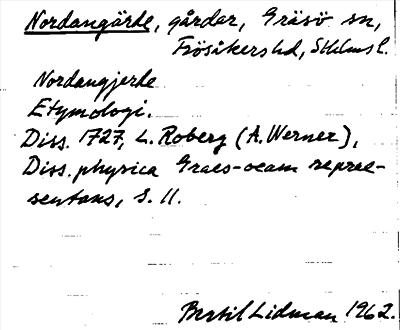 Nordangärde, gårdar, Gräsö sn,
Frösåkers hd, Sthlms l.
Nordangjerde
Etymologi.
Diss. 1727, L. Roberg (A. Werner),
Diss. physica Graes-oeam reprae-
sentans, S. 11.
Bertil Lidman 1962.